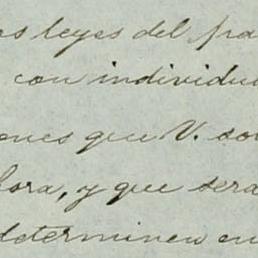 os leyes del pa
con individu
ones que V. so
hora, y que sera
determinen en